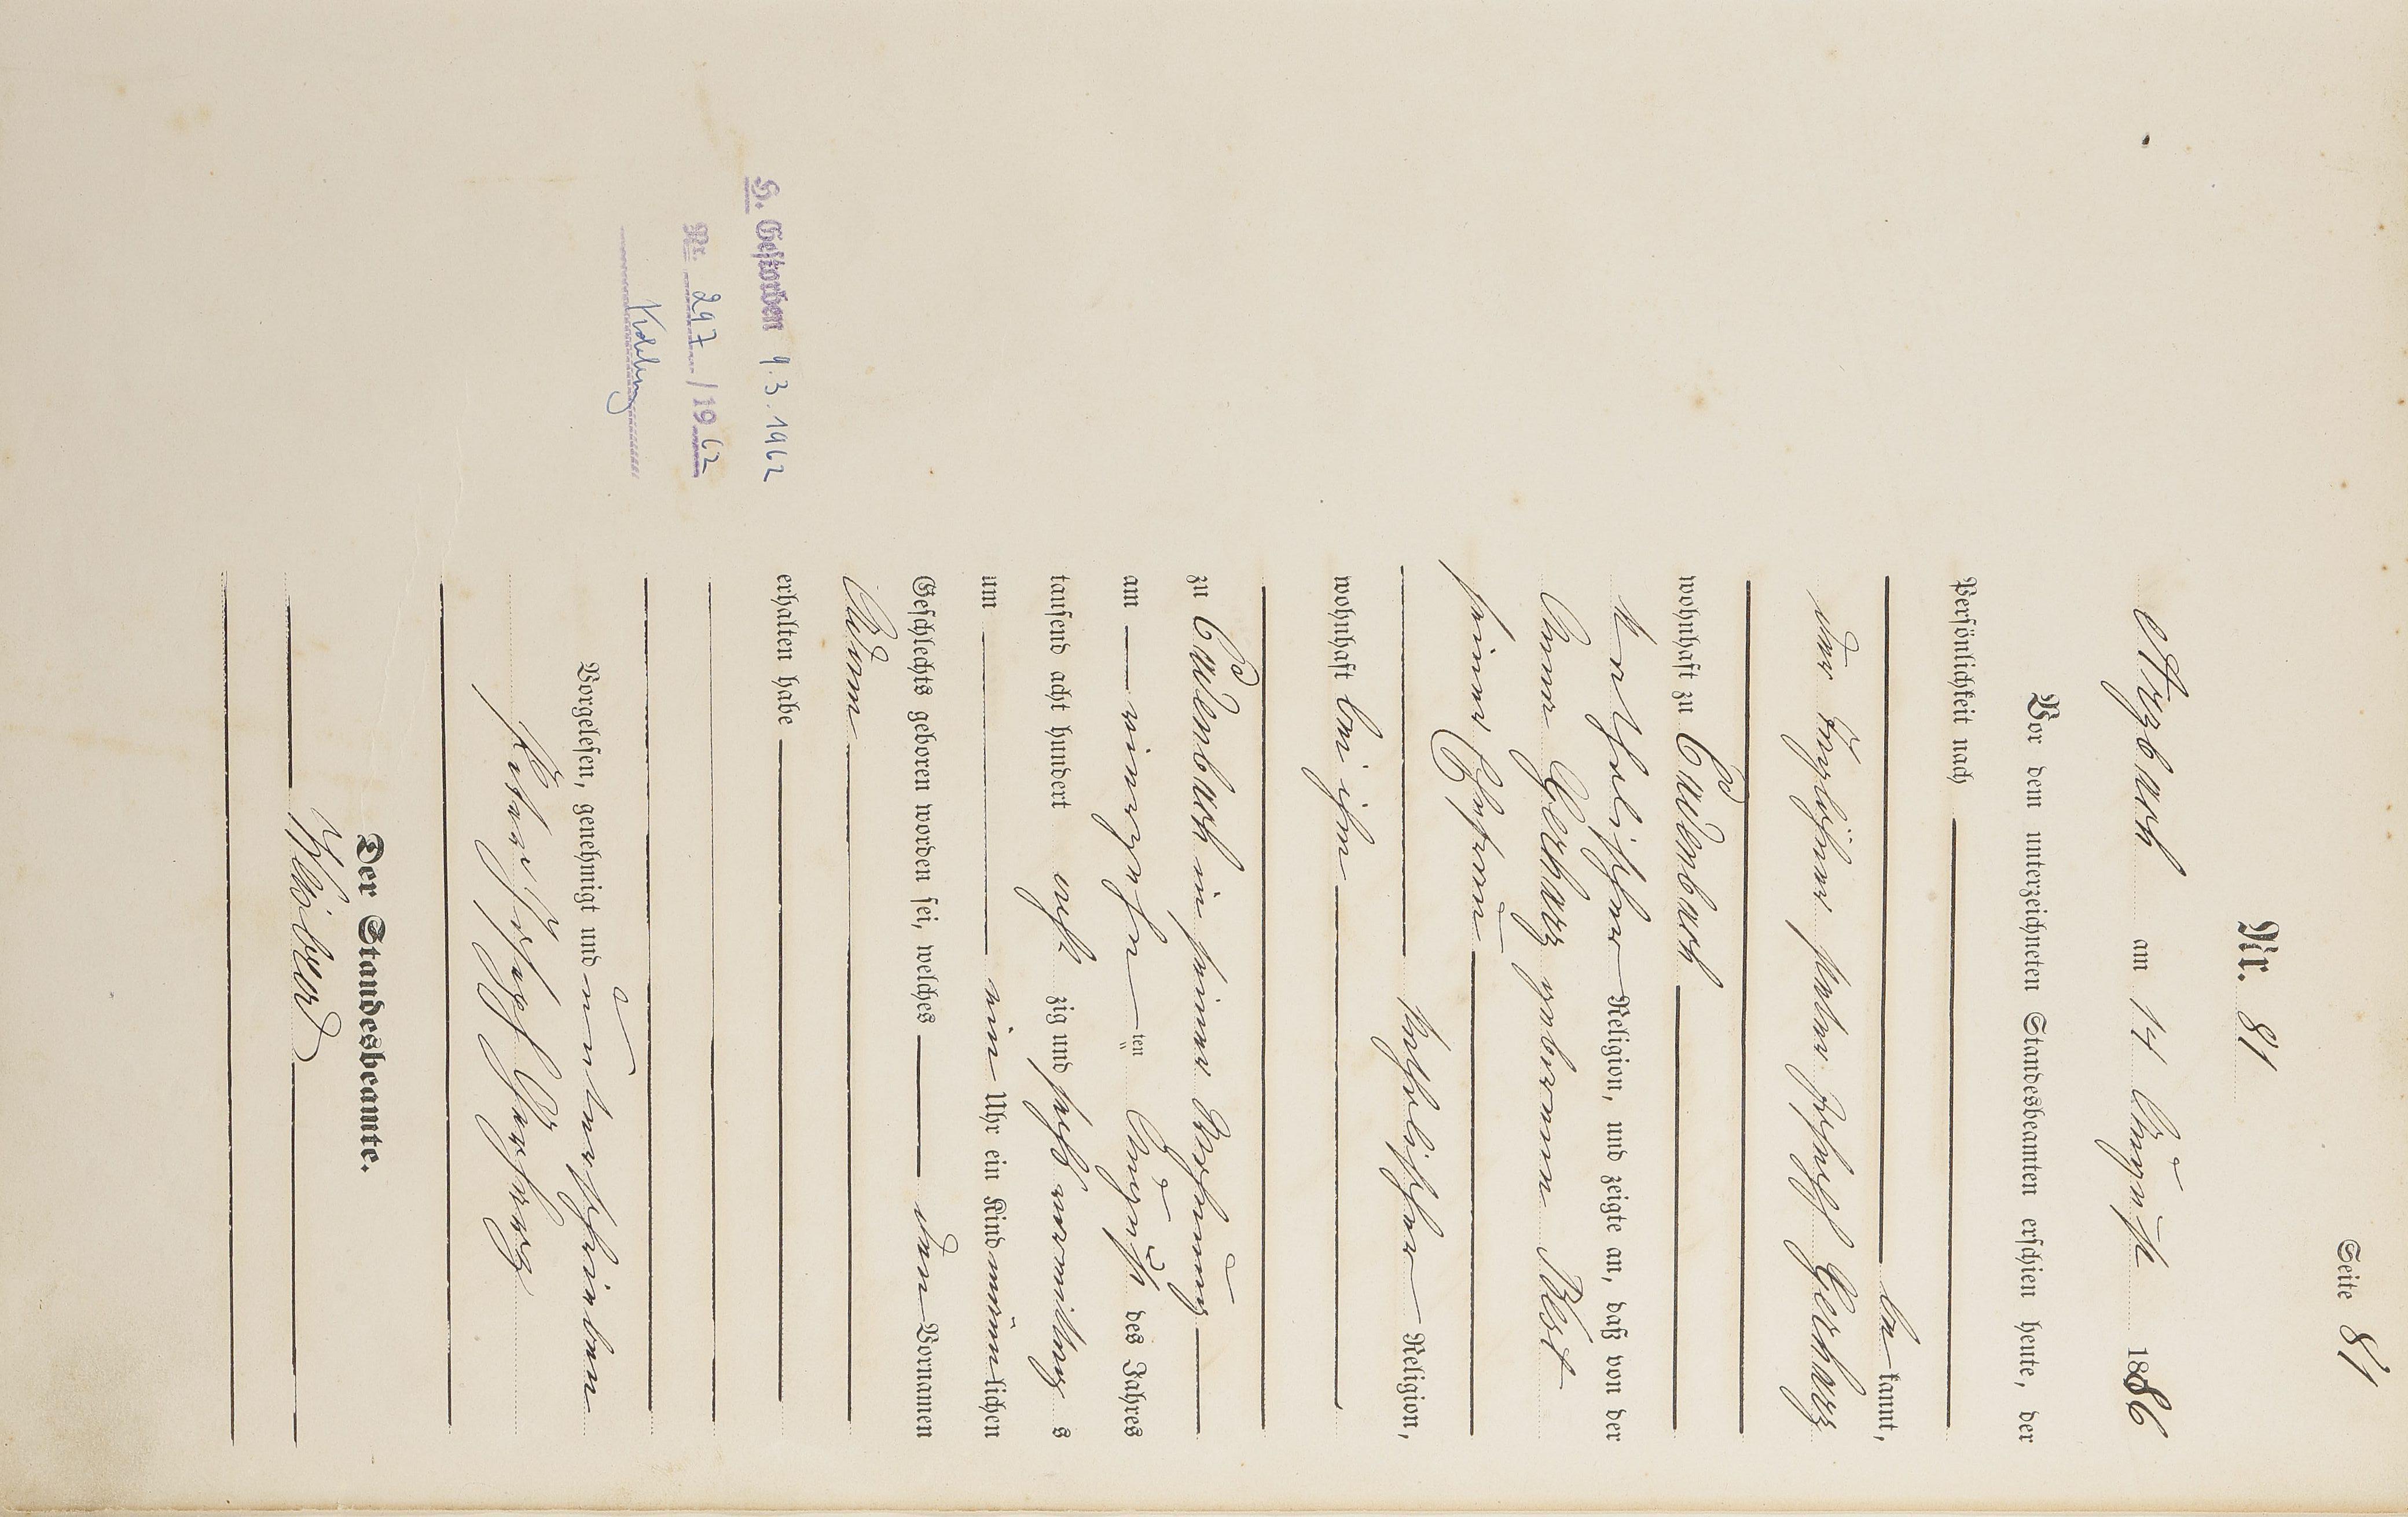 Seite 81
Nr. 81
Arzbach am 14 August 1886
Vor dem unterzeichneten Standesbeamten erschien heute, der
Persönlichkeit nach
be kannt,
der Taglöhner Peter Joseph Gerharz
wohnhaft zu Cadenbach
katholischer Religion, und zeigte an, daß von der
Anna Gerharz geborenen Blet
seiner Ehefrau
katholischer Religion,
wohnhaft bei ihm
zu Cadenbach in seiner Wohnung
am vierzehn ten August des Jahres
tausend acht hundert acht zig und sechs vormittag s
um ein Uhr ein Kind männ lichen
Geschlechts geboren worden sei, welches den Vornamen
Adam
erhalten habe
H. Gestorben 9.3.1962
Nr. 297 / 19 62
Vorgelesen, genehmigt und unterschrieben
Peter Joseph Gerharz
Der Standesbeamte.